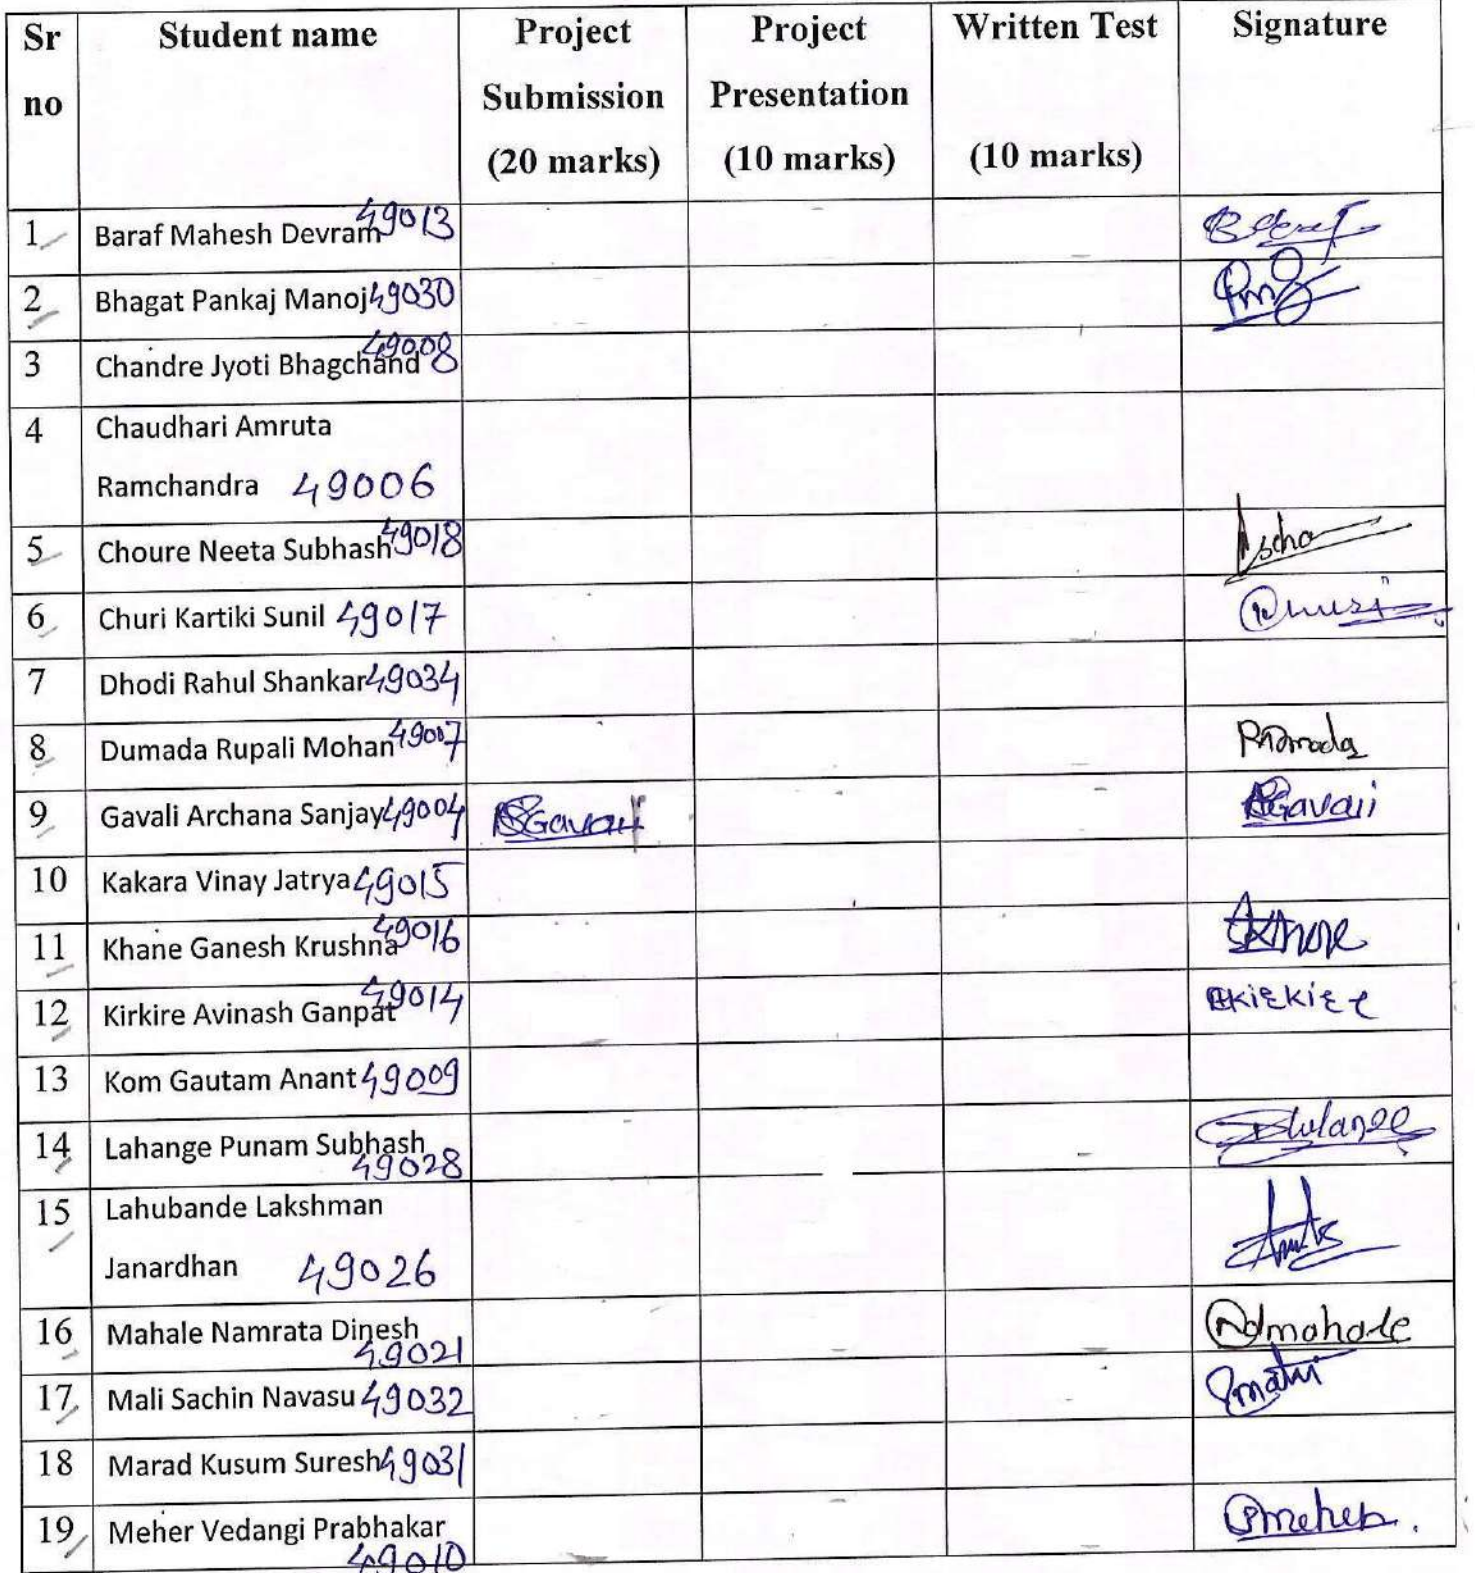 Sr no Student name Project Submission (20 marks) Project Presentation (10 marks) Written Test (10 marks) Signature
1 Baraf Mahesh Devram 49013
2 Bhagat Pankaj Manoj 49030
3 Chandre Jyoti Bhagchand 49008
4 Chaudhari Amruta
Ramchandra 49006
5 Choure Neeta Subhash 49018
6 Churi Kartiki Sunil 49017
7 Dhodi Rahul Shankar 49034
8 Dumada Rupali Mohan 49007
9 Gavali Archana Sanjay 49004
10 Kakara Vinay Jatrya 49015
11 Khane Ganesh Krushna 49016
12 Kirkire Avinash Ganpat 49014
13 Kom Gautam Anant 49009
14 Lahange Punam Subhash 49028
15 Lahubande Lakshman
Janardhan 49026
16 Mahale Namrata Dinesh 49021 Ndmahale
17 Mali Sachin Navasu 49032
18 Marad Kusum Suresh 49031
19 Meher Vedangi Prabhakar 49010